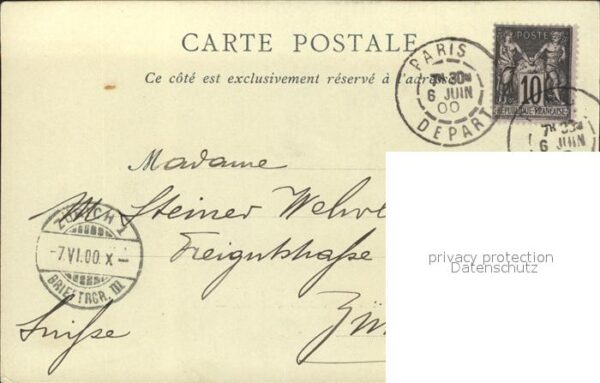 CARTE POSTALE
Ce côté est exclusivement réservé à l'adresse
PARIS
7H 30
6 JUIN
00
DEPART
POSTE
10
REPUBLIQUE FRANÇAISE
7H 30
6 JUIN
Madame
M Steiner
ZÜRICH 1
-7.VI.00.X-
BRIEFTRGR. III
Suisse
Zü
privacy protection
Datenschutz